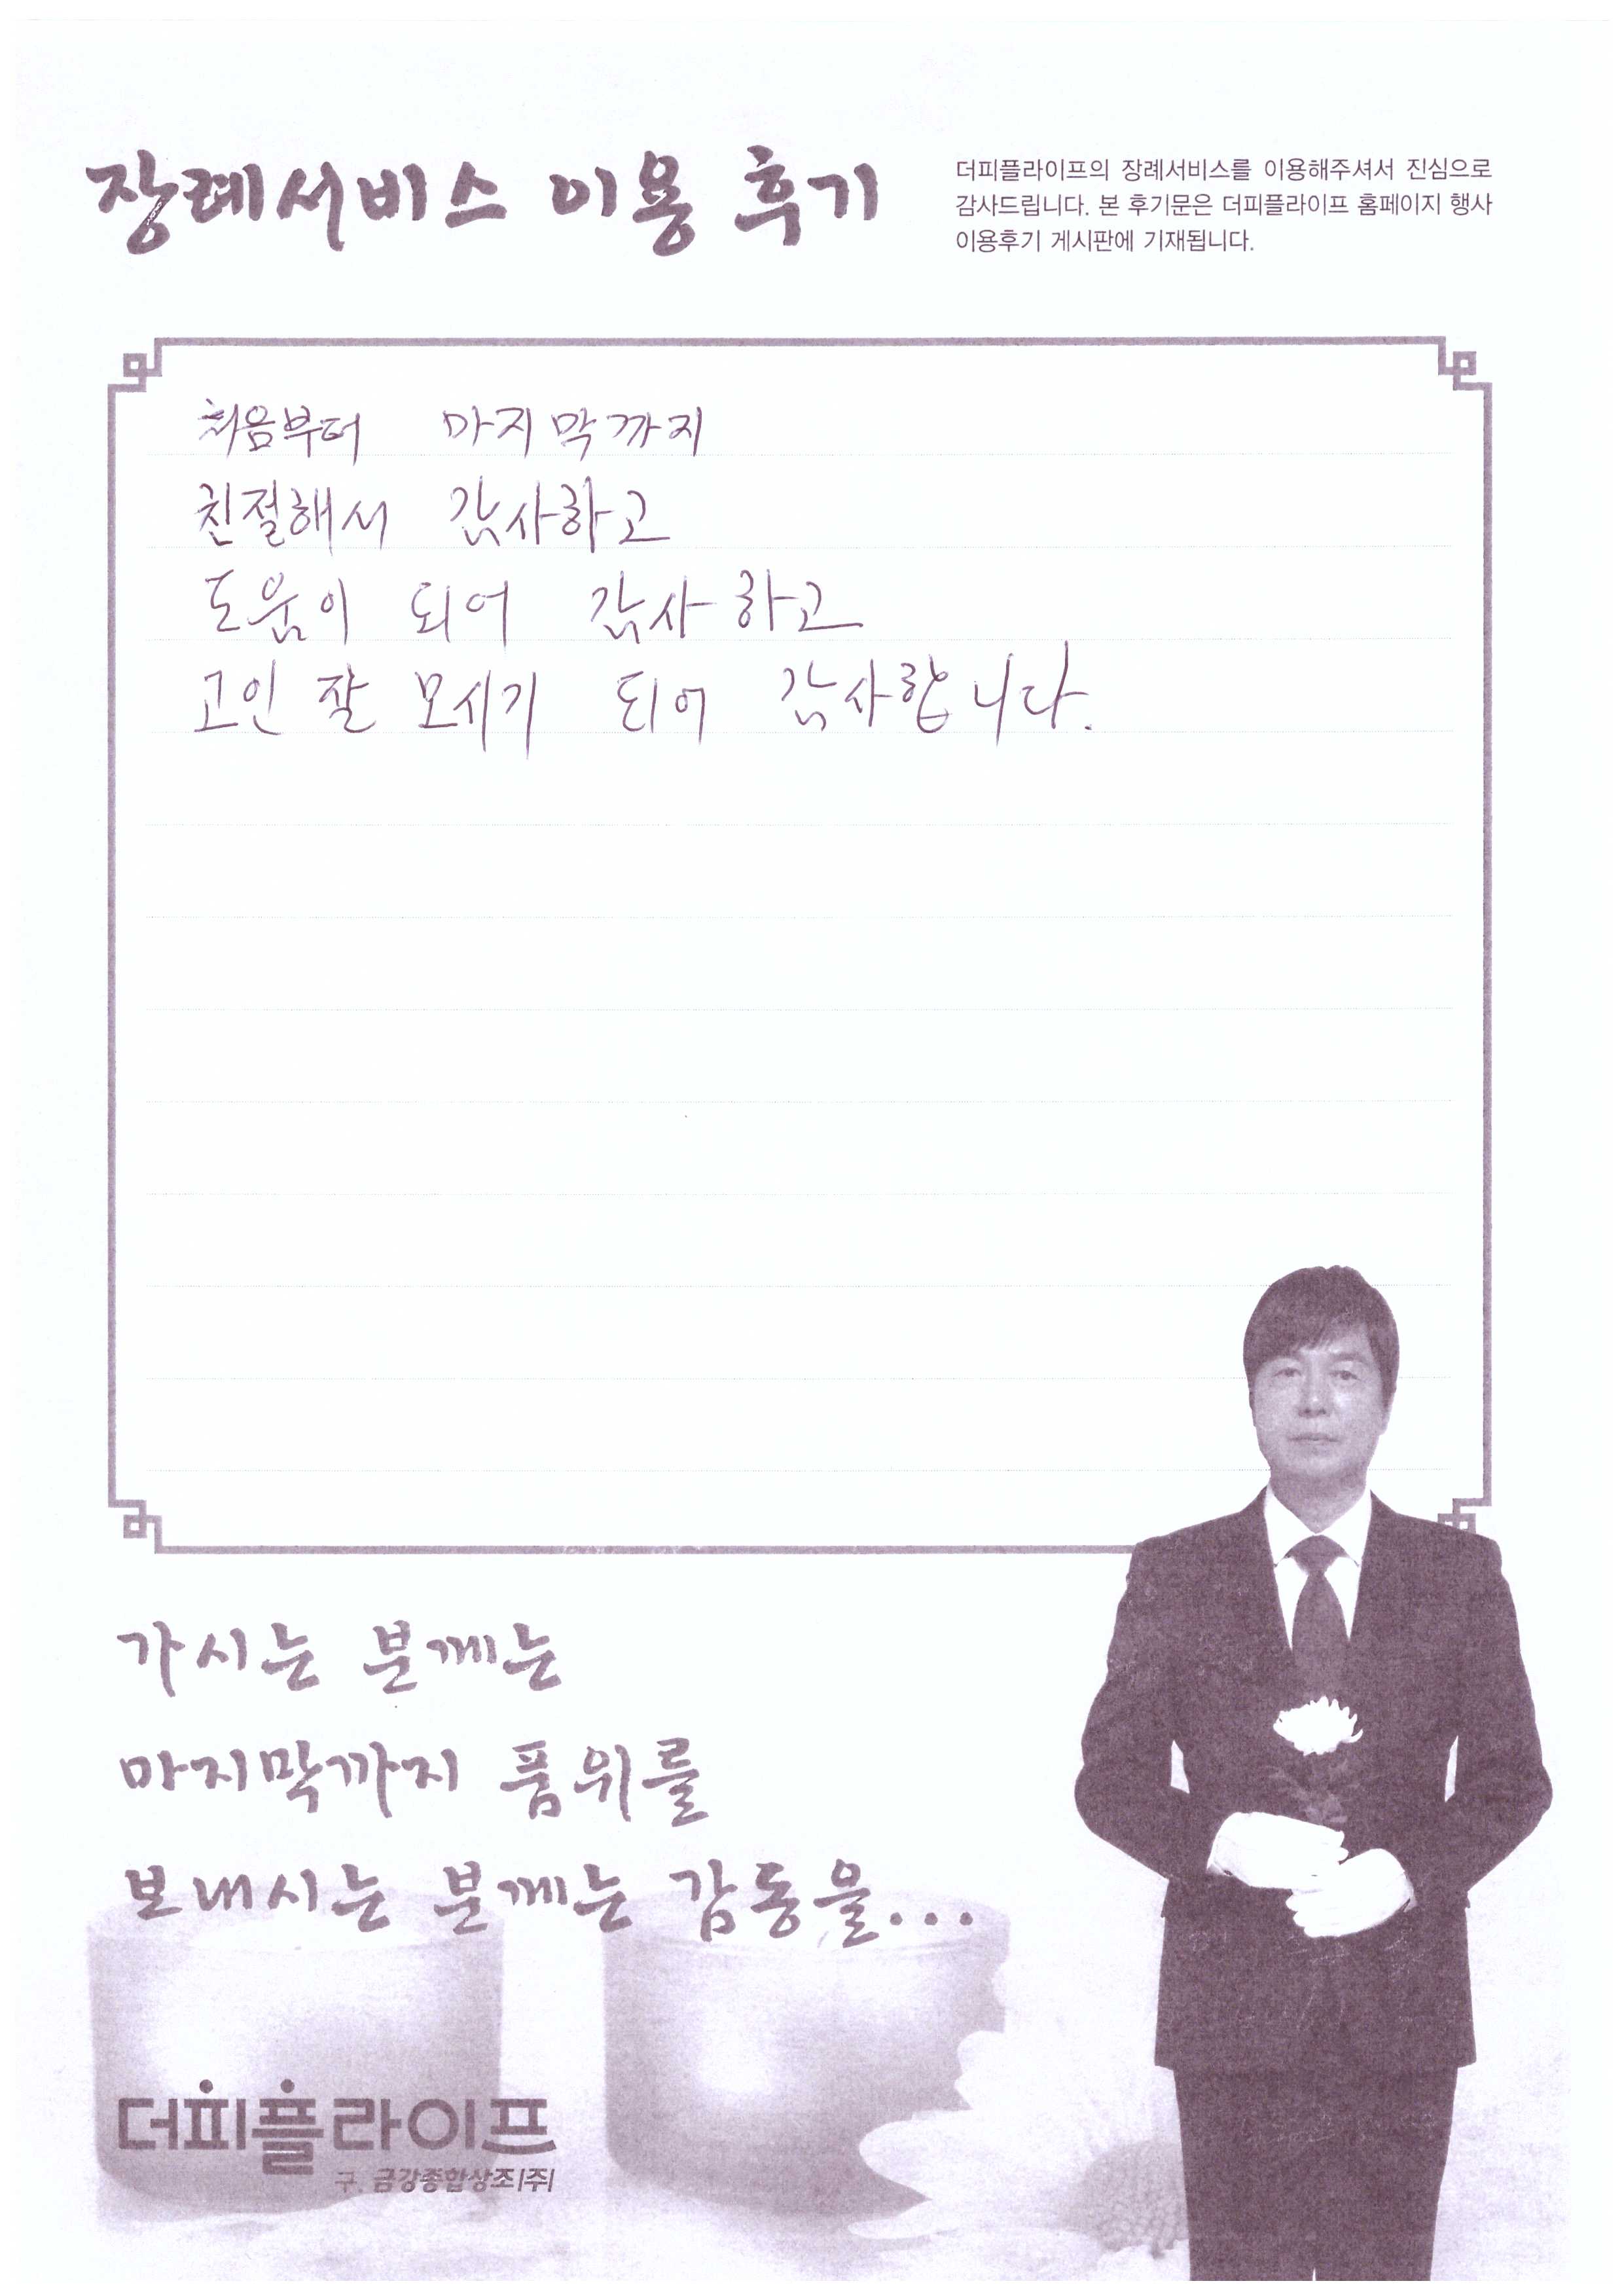 장례서비스 이용 후기
더피플라이프의 장례서비스를 이용해주셔서 진심으로
감사드립니다. 본 후기문은 더피플라이프 홈페이지 행사
이용후기 게시판에 기재됩니다.
처음부터 마지막까지
친절해서 감사하고
도움이 되어 감사하고
고인 잘 모시기 되어 감사합니다.
가시는 분께는
마지막까지 품위를
보내시는 분께는 감동을...
더피플라이프
구. 금강종합상조(주)